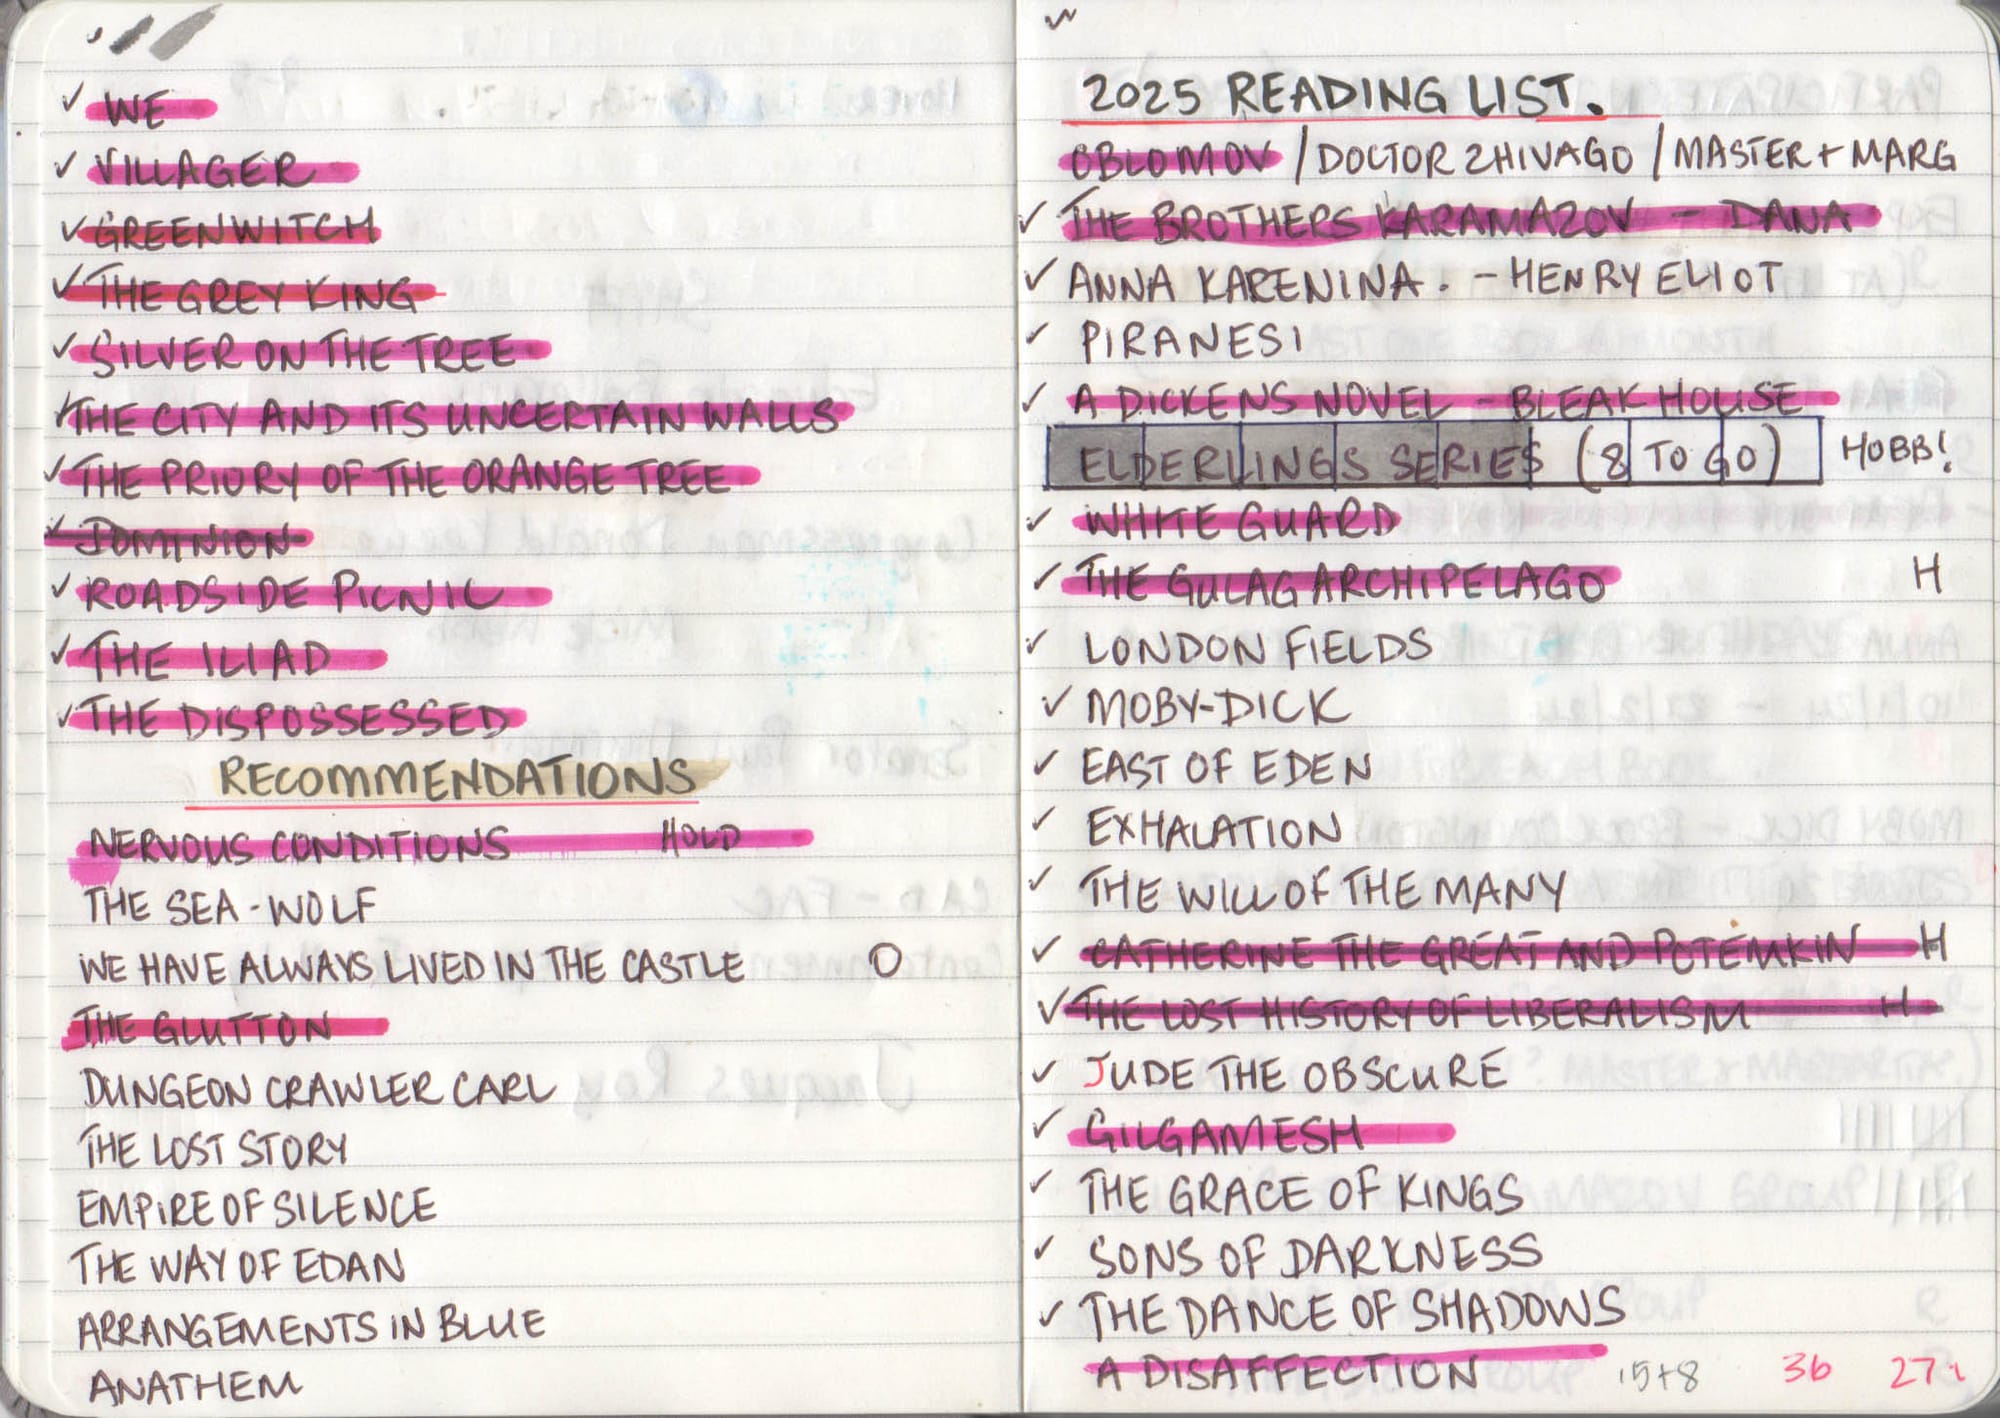 WE
VILLAGER
GREENWITCH
THE GREY KING
SILVER ON THE TREE
THE CITY AND ITS UNCERTAIN WALLS
THE PRIORY OF THE ORANGE TREE
DOMINION
ROADSIDE PICNIC
THE ILIAD
THE DISPOSSESSED
RECOMMENDATIONS
NERVOUS CONDITIONS HOLD
THE SEA-WOLF
WE HAVE ALWAYS LIVED IN THE CASTLE O
THE GLUTTON
DUNGEON CRAWLER CARL
THE LOST STORY
EMPIRE OF SILENCE
THE WAY OF EDAN
ARRANGEMENTS IN BLUE
ANATHEM
2025 READING LIST.
OBLOMOV / DOCTOR ZHIVAGO / MASTER + MARG
THE BROTHERS KARAMAZOV - DANA
ANNA KARENINA. - HENRY ELIOT
PIRANESI
A DICKENS NOVEL - BLEAK HOUSE
ELDERLINGS SERIES (8 TO GO) HOBB!
WHITE GUARD
THE GULAG ARCHIPELAGO H
LONDON FIELDS
MOBY-DICK
EAST OF EDEN
EXHALATION
THE WILL OF THE MANY
CATHERINE THE GREAT AND POTEMKIN H
THE LOST HISTORY OF LIBERALISM H
JUDE THE OBSCURE
GILGAMESH
THE GRACE OF KINGS
SONS OF DARKNESS
THE DANCE OF SHADOWS
A DISAFFECTION 15+8 36 27